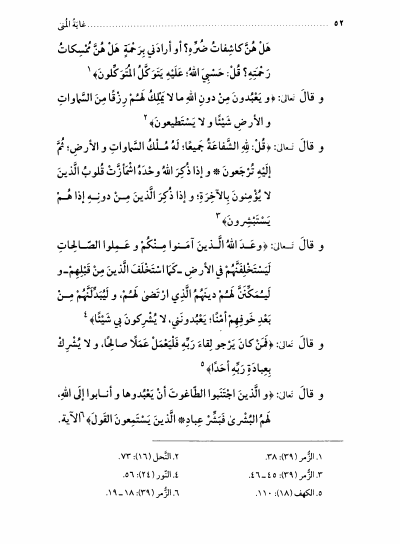 ٥٢ ............ غاية المنى
هَلْ هُنَّ كاشِفاتُ ضُرِّهِ؟ أو أرادَني بِرَحْمَةٍ هَلْ هُنَّ مُمْسِكاتُ
رَحْمَتِهِ؟ قُلْ: حَسْبِيَ اللهُ؛ عَلَيْهِ يَتَوَكَّلُ الْمُتَوَكِّلونَ﴾١
و قالَ تعالى: ﴿و يَعْبُدونَ مِنْ دونِ اللهِ ما لا يَمْلِكُ لَهُمْ رِزْقًا مِنَ السَّماواتِ
و الأرضِ شَيْئًا و لا يَسْتَطيعونَ﴾٢
و قالَ تعالى: ﴿قُلْ: لِلّهِ الشَّفاعَةُ جَميعًا؛ لَهُ مُلْكُ السَّماواتِ و الأرضِ؛ ثُمَّ
إلَيْهِ تُرْجَعونَ * و إذا ذُكِرَ اللهُ وَحْدَهُ اشْمَأزَّتْ قُلوبُ الَّذينَ
لا يُؤْمِنونَ بِالآخِرَةِ؛ و إذا ذُكِرَ الَّذينَ مِنْ دونِهِ إذا هُمْ
يَسْتَبْشِرونَ﴾٣
و قالَ تعالى: ﴿وَعَدَ اللهُ الَّذينَ آمَنوا مِنْكُمْ و عَمِلوا الصّالِحاتِ
لَيَسْتَخْلِفَنَّهُمْ في الأرضِ ـ كَمَا اسْتَخْلَفَ الَّذينَ مِنْ قَبْلِهِمْ ـ و
لَيُمَكِّنَنَّ لَهُمْ دينَهُمُ الَّذي ارْتَضىٰ لَهُمْ، و لَيُبَدِّلَنَّهُمْ مِنْ
بَعْدِ خَوفِهِمْ أمْنًا؛ يَعْبُدونَني، لا يُشْرِكونَ بي شَيْئًا﴾٤
و قالَ تعالى: ﴿فَمَنْ كانَ يَرْجو لِقاءَ رَبِّهِ فَلْيَعْمَلْ عَمَلًا صالِحًا، و لا يُشْرِكْ
بِعِبادَةِ رَبِّهِ أحَدًا﴾٥
و قالَ تعالى: ﴿و الَّذينَ اجْتَنَبوا الطّاغوتَ أنْ يَعْبُدوها و أنابوا إلى اللهِ،
لَهُمُ البُشْرىٰ فَبَشِّرْ عِبادِ * الَّذينَ يَسْتَمِعونَ القَولَ﴾٦ الآية.
١. الزُّمر (٣٩): ٣٨.
٢. النَّحل (١٦): ٧٣.
٣. الزُّمر (٣٩): ٤٥ ـ ٤٦.
٤. النّور (٢٤): ٥٦.
٥. الكهف (١٨): ١١٠.
٦. الزُّمر (٣٩): ١٨ ـ ١٩.